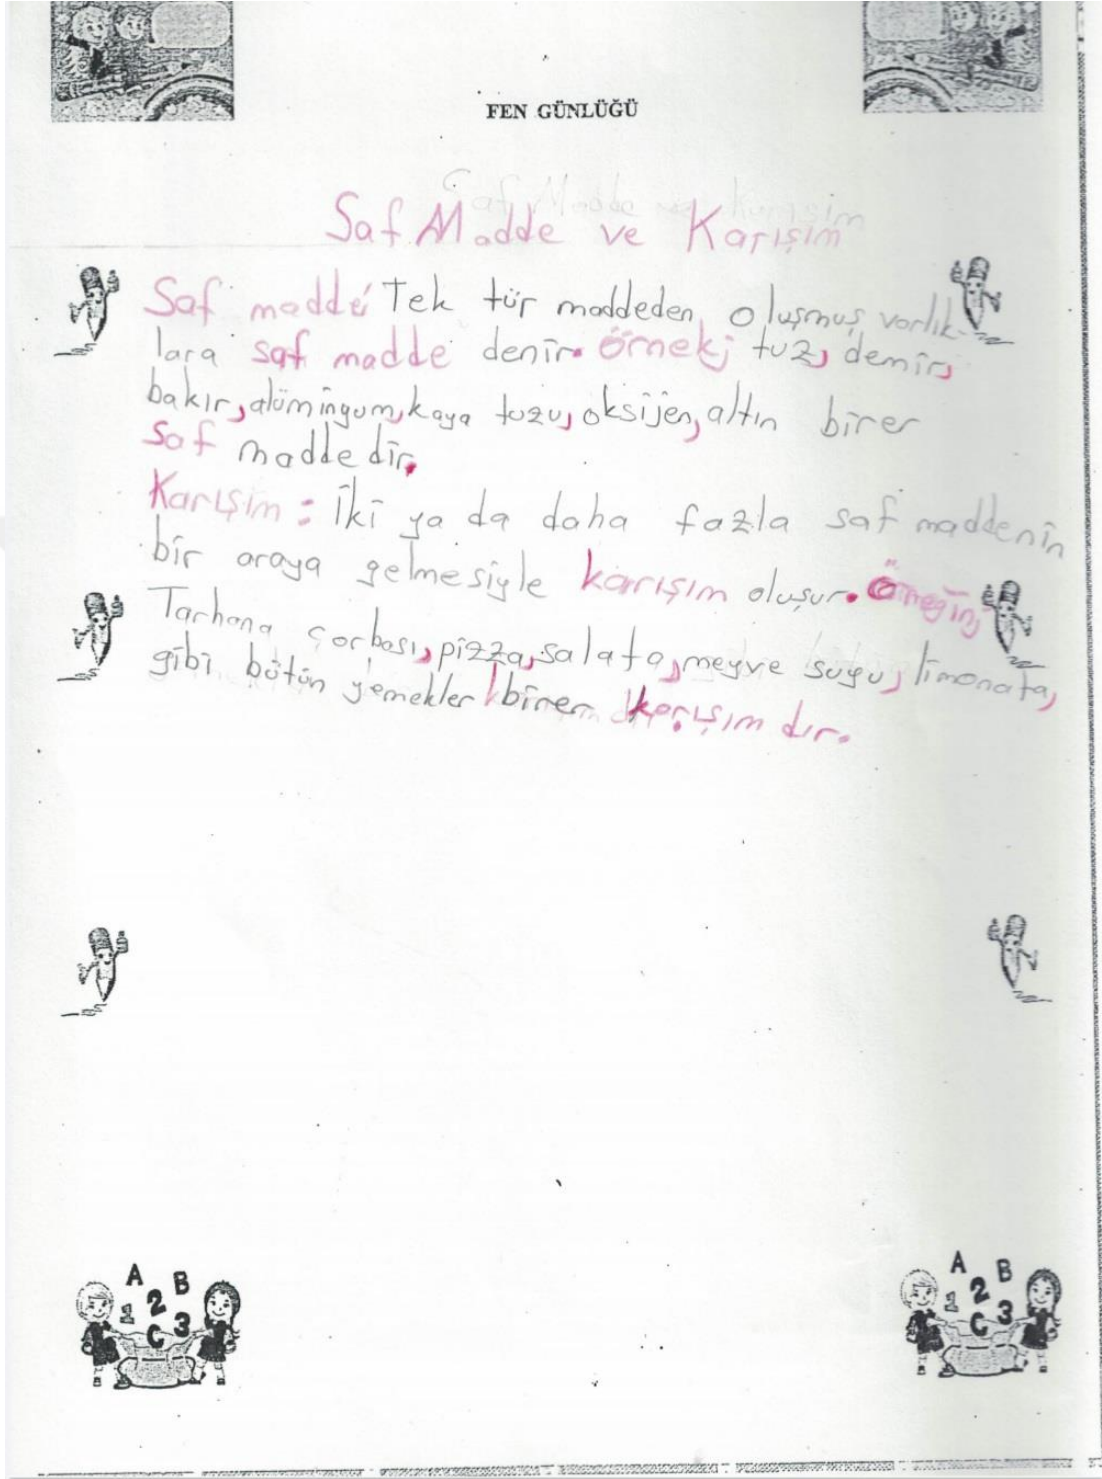 FEN GÜNLÜĞÜ
Saf Madde ve Karışım
Saf madde: Tek tür maddeden oluşmuş varlık-
lara saf madde denir. örnek; tuz, demir,
bakır, alüminyum, kaya tuzu, oksijen, altın birer
saf maddedir.
Karışım: İki ya da daha fazla saf maddenin
bir araya gelmesiyle karışım oluşur. Örneğin;
Tarhana çorbası, pizza, salata, meyve suyu, limonata,
gibi bütün yemekler birer karışım dır.
A B
1 2
C 3
A B
1 2
C 3